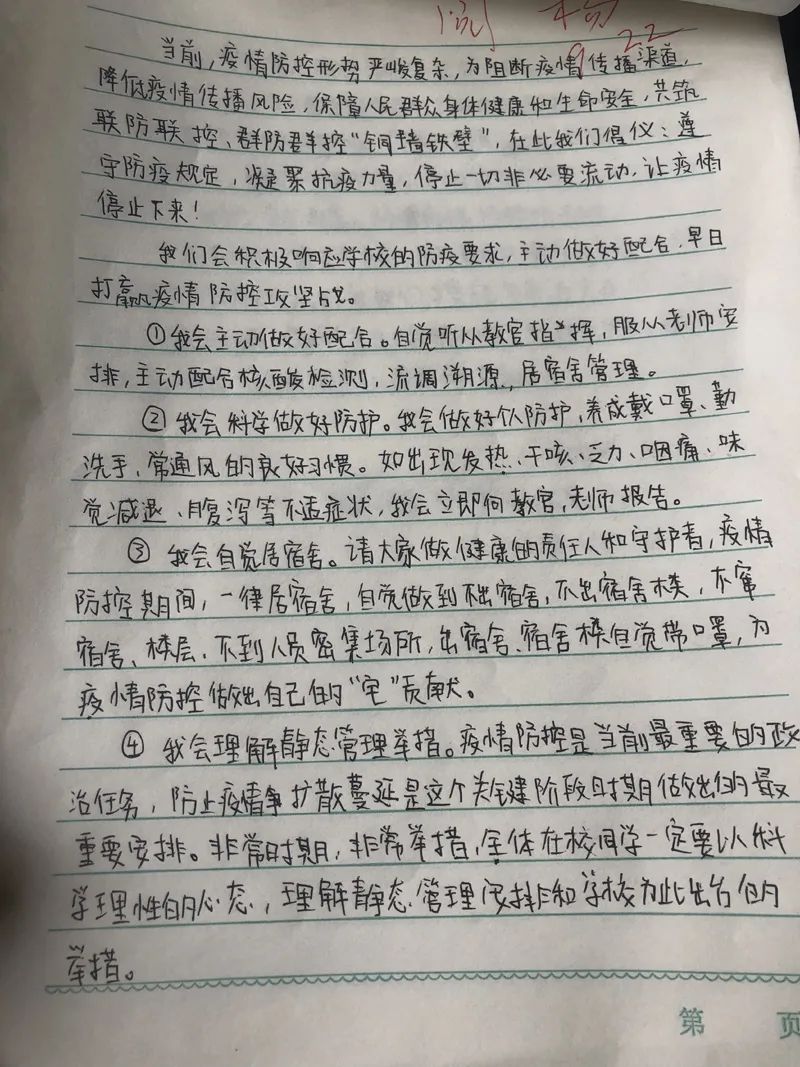 阅 杨
9.22
当前,疫情防控形势严峻复杂,为阻断疫情传播渠道,
降低疫情传播风险,保障人民群众身体健康和生命安全,共筑
联防联控、群防群控“铜墙铁壁”,在此我们倡仪:遵
守防疫规定,凝聚抗疫力量,停止一切非必要流动,让疫情
停止下来!
我们会积极响应学校的防疫要求,主动做好配合,早日
打赢疫情防控攻坚战。
①我会主动做好配合。自觉听从教官指挥,服从老师安
排,主动配合核酸检测,流调溯源,居宿舍管理。
②我会科学做好防护。我会做好个人防护,养成戴口罩、勤
洗手、常通风的良好习惯。如出现发热、干咳、乏力、咽痛、味
觉减退、腹泻等不适症状,我会立即向教官,老师报告。
③我会自觉居宿舍。请大家做健康的责任人和守护者,疫情
防控期间,一律居宿舍,自觉做到不出宿舍,不出宿舍楼,不窜
宿舍、楼层、不到人员密集场所,出宿舍、宿舍楼自觉带口罩,为
疫情防控做出自己的“宅”贡献。
④我会理解静态管理举措。疫情防控是当前最重要的政
治任务,防止疫情扩散蔓延是这个关键阶段时期做出的最
重要安排。非常时期,非常举措,全体在校同学一定要以科
学理性的心态,理解静态管理安排和学校为此出台的
举措。
第 页